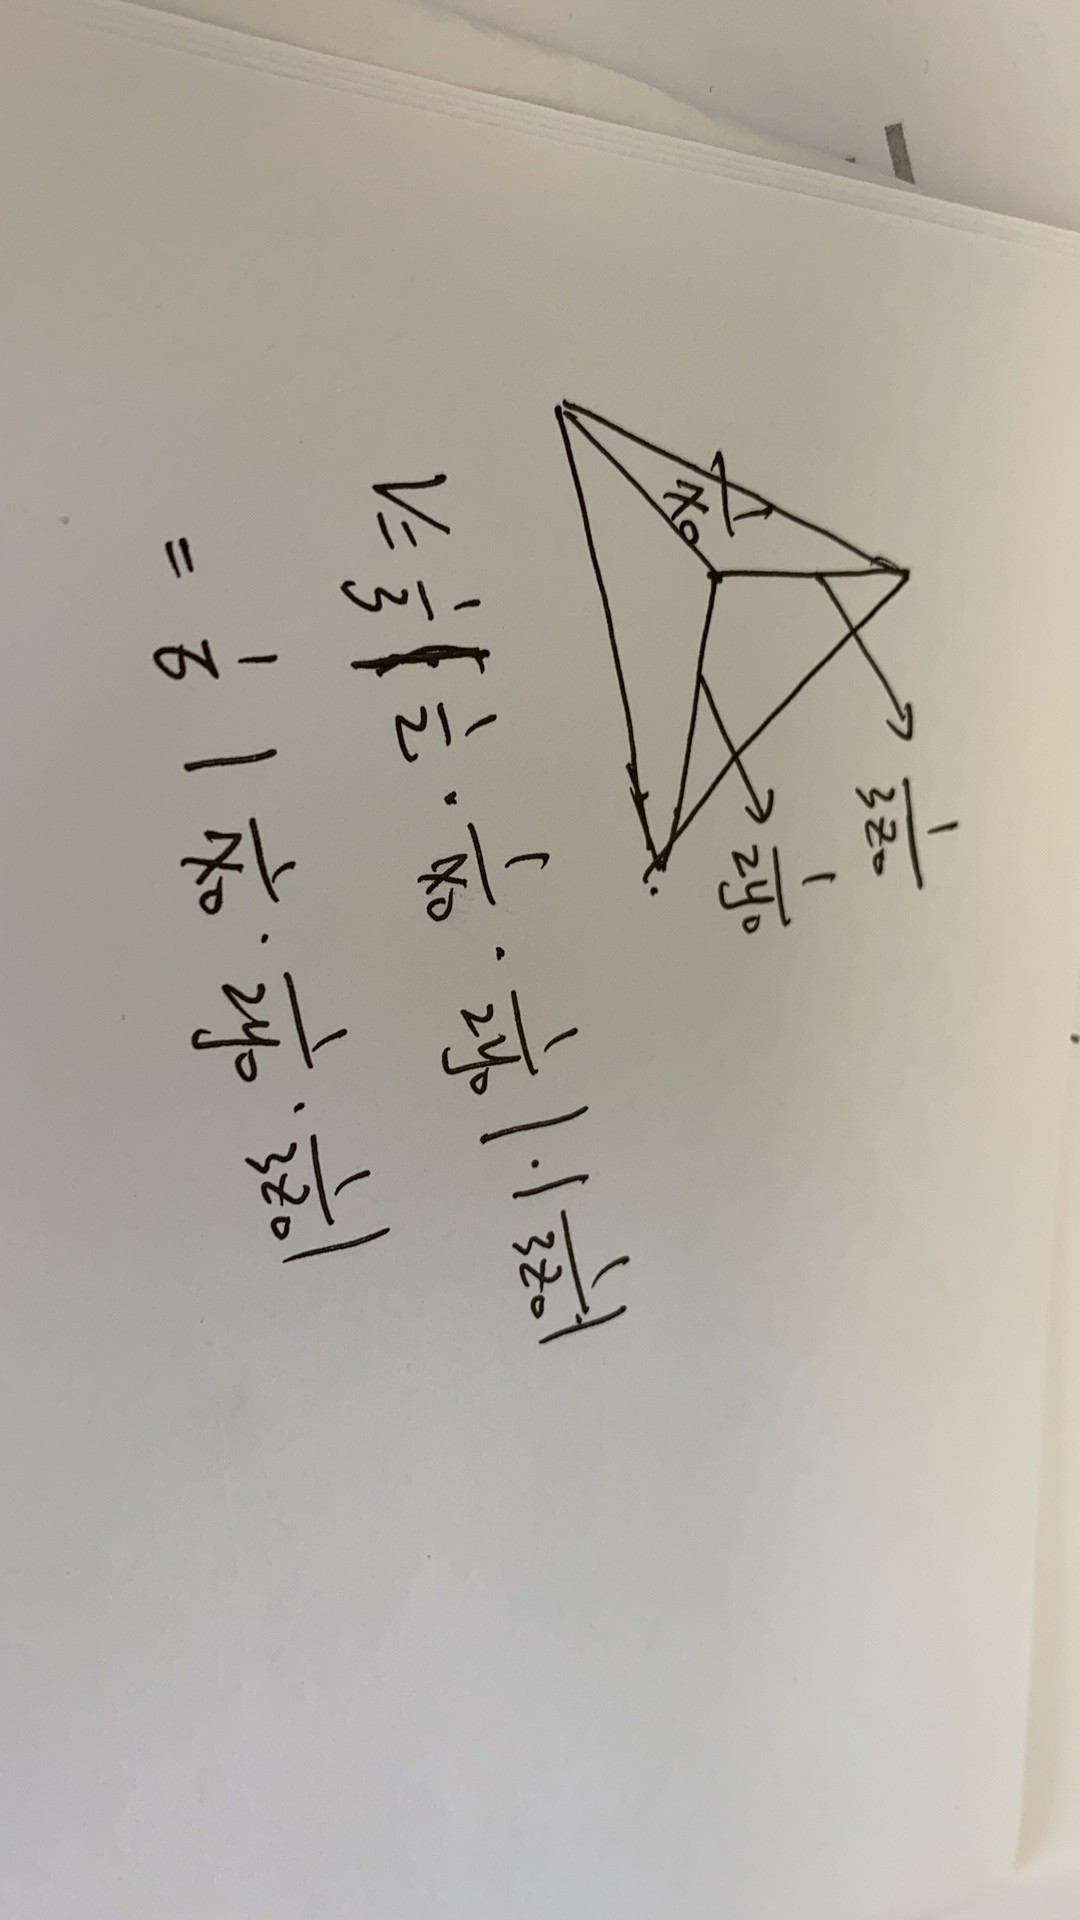 1/(3z₀)
1/x₀
1/(2y₀)
V = 1/3 | 1/2 · 1/x₀ · 1/(2y₀) | · | 1/(3z₀) |
= 1/6 | 1/x₀ · 1/(2y₀) · 1/(3z₀) |